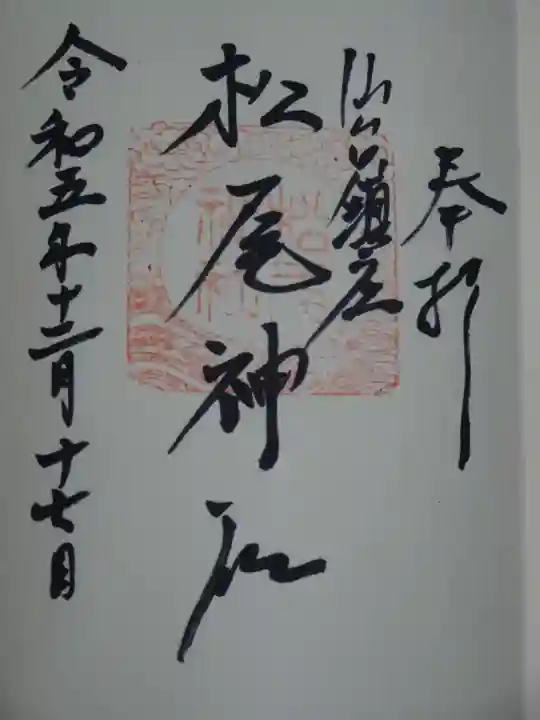 奉拝
仙台鎮座
松尾神社
令和五年十二月十七日